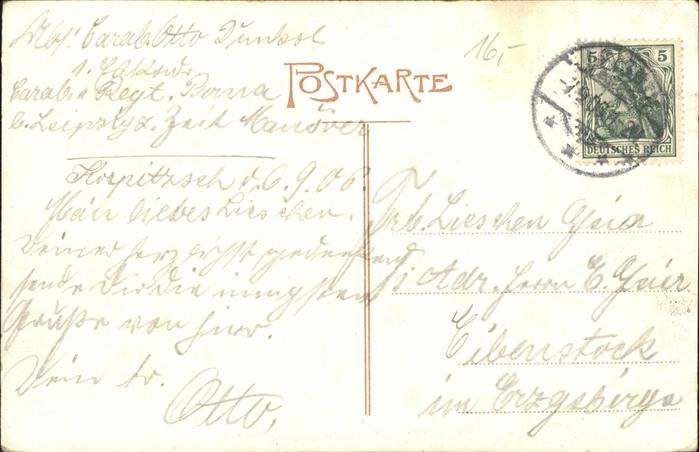 Abs. Carab. Otto Dunkel
1. Eskadr.
Carab. Regt. Borna
b. Leipzig z. Zeit Manöver
16,-
POSTKARTE
5 5
DEUTSCHES REICH
Kospitzsch d. 6.9.06.
Mein liebes Lieschen.
Deiner herzlichst gedenkend
sende Dir die innigsten
Grüße von hier.
Dein tr.
Otto.
Frl. Lieschen
Adr. Herrn E. Geier
Eibenstock
im Erzgebirge